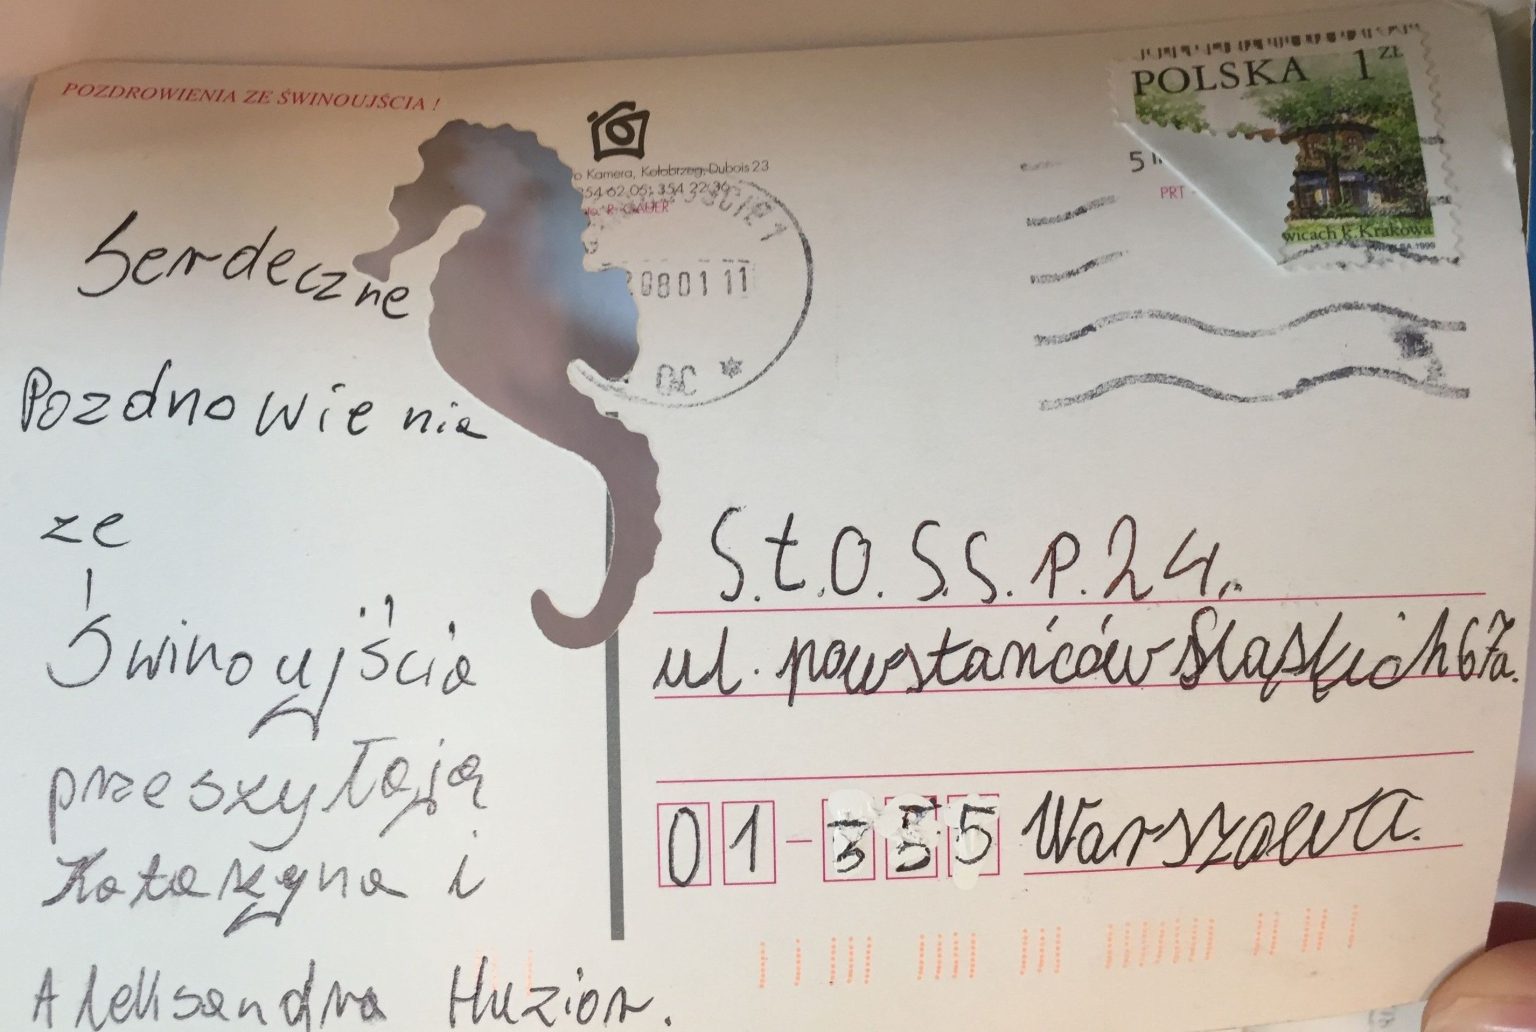 POZDROWIENIA ZE ŚWINOUJŚCIA !
Kamera, Kołobrzeg, Dubois 23
354 62 05; 354 22 36
POLSKA 1 ZŁ
5
PRT
wicach k. Krakowa
0801 11
OC *
Serdeczne
Pozdrowienia
ze
Świnoujścia
przesyłają
Katarzyna i
Aleksandra Huzior.
S.t.O. S.S. P. 24.
ul. powstańców Śląskich 67a.
01-355 Warszawa.